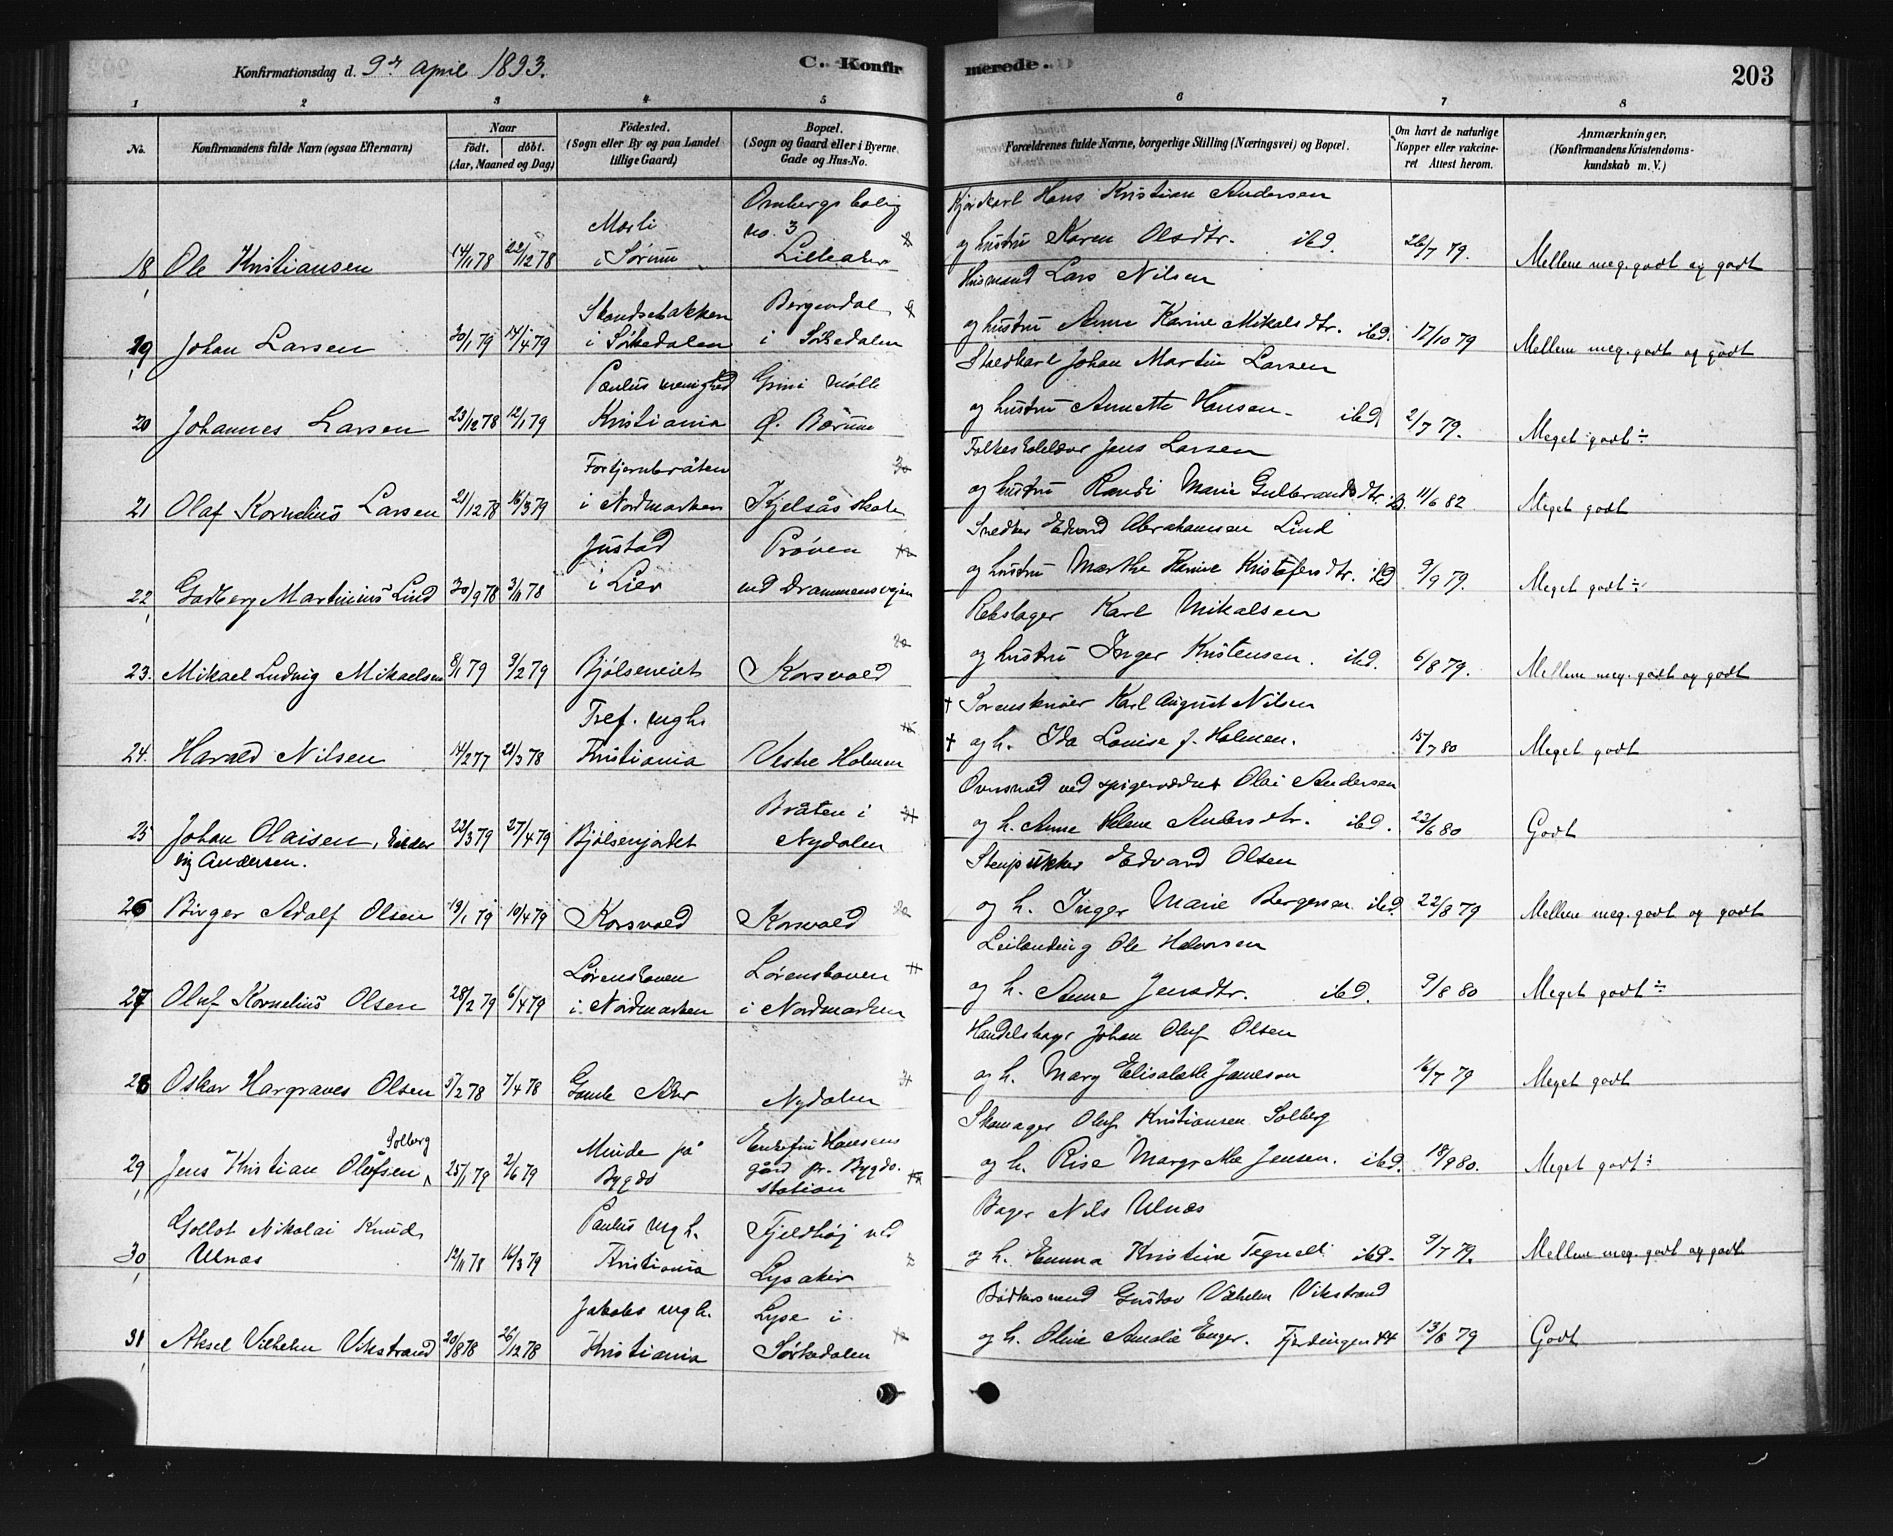 Konfirmationsdag d. 9de april 1893.
C. Konfir
merede.
203
1 2 3 4 5 6 7 8
No.
Konfirmandens fulde Navn (ogsaa Efternavn)
Naar
födt. döbt.
(Aar, Maaned og Dag)
Födested.
(Sogn eller By og paa Landet
tillige Gaard)
Bopæl.
(Sogn og Gaard eller i Byerne
Gade og Hus-No.
Forældrenes fulde Navne, borgerlige Stilling (Næringsvei) og Bopæl.
Om havt de naturlige
Kopper eller vakcine-
ret Attest herom.
Anmærkninger.
(Konfirmandens Kristendoms-
kundskab m. V.)
Ombergs bolig
Marli no. 3
18 Ole Kristiansen 14/11 78 22/12 78 i Sørum Lilleaker
Hans Kristian Andersen
og hustru Karen Olsdtr. ibd. 26/7 79. Mellem meg. godt og godt
Skandsebakken Bergendal
19 Johan Larsen 20/1 79 14/4 79 i Sørkedalen i Sørkedalen
Husmand Lars Nilsen
og hustru Anne Karine Mikalsdtr. ibd. 17/10 79 Mellem meg. godt og godt
Paulus menighed Grini mølle
20 Johannes Larsen 23/12 78 12/1 79 Kristiania Ø. Bærum
Staldkarl Johan Martin Larsen
og hustru Annette Hansen - ibd 2/7 79. Meget godt ÷
i Nordmarken Kjelsås skole
21 Olaf Kornelius Larsen 21/12 78 16/3 79
Jens Larsen
og hustru Randi Marie Gulbrandsdtr. ib. 11/6 82 Meget godt
Justad Prøven
22 Martinius Lind 30/9 78 3/11 78 i Lier ved Drammensveien
Snedker Edvard Abrahamsen Lind
og hustru Marthe Karine Kristofersdtr. ibd 9/9 79. Meget godt ÷
23. Mikael Ludvig Mikaelsen 8/1 79 9/2 79 Korsvold
Rebslager Karl Mikalsen
og hustru Inger Kristensen. ibd. 6/8 79. Mellem meg. godt og godt
Tref. mgh.
24. Harald Nilsen 14/2 77 Kristiania Vestre Holmen
† Karl August Nilsen
† og h. Ida Louise f. Holmen. 15/7 80 Meget godt
Bråten i
25 Johan Olaisen, 22/3 79 27/4 79 Bjølsenjordet Nydalen
sig Andersen.
Olai Andersen
og h. Anne Helene Andersdtr. ibd. 23/6 80 Godt
26 Birger Adolf Olsen 19/1 79 10/4 79 Korsvold Korsvold
Stenpukker Edvard Olsen
og h. Inger Marie Bergersen ibd. 22/8 79 Mellem meg. godt og godt
Lørenskoven Lørenskoven
27 Oluf Kornelius Olsen 28/2 79 6/4 79 i Nordmarken i Nordmarken
Leilending Ole Halvorsen
og h. Anne Jensdtr. ibd. 9/8 80 Meget godt ÷
28 Oskar Hargraves Olsen 5/2 78 7/4 78 Gamle Aker Nydalen
Johan Oluf Olsen
og h. Mary Elisabeth Jameson 16/7 79 Meget godt
Solberg Minde på Hansens
29 Jens Kristian Olufsen 25/1 79 2/6 79 Bygdø gård pr. Bygdø
station
Skomager Oluf Kristiansen Solberg
og h. Jensen. ibd. 18/9 80. Meget godt ÷
Gollot Nikolai Knud Paulus mgh. Fjeldhøj ved
30 Ulnæs 12/11 78 16/3 79 Kristiania Lysaker
Bager Nils Ulnæs
og h. Emma Kristine ibd. 9/7 79. Mellem meg. godt og godt
Jakobs mgh. Lyse i
31 Aksel Vilhelm Vikstrand 20/8 78 26/12 78 Kristiania Sørkedalen
Bødkersvend Gustav Vilhelm Vikstrand
og h. Oline Amalie Enger. Fjerdingen 44 13/8 79 Godt